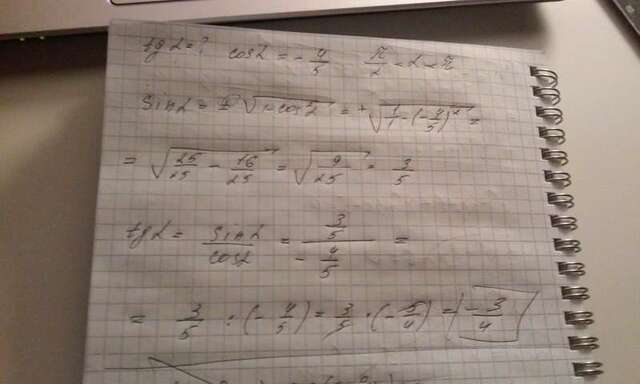 tg α = ? cos α = - 4/5 π/2 < α < π
Sin α = ± √(1-cos²α) = + √(1/1 - (-4/5)²) =
= √(25/25 - 16/25) = √(9/25) = 3/5
tg α = Sin α / cos α = 3/5 / - 4/5 =
= 3/5 : (- 4/5) = 3/5 · (- 5/4) = - 3/4